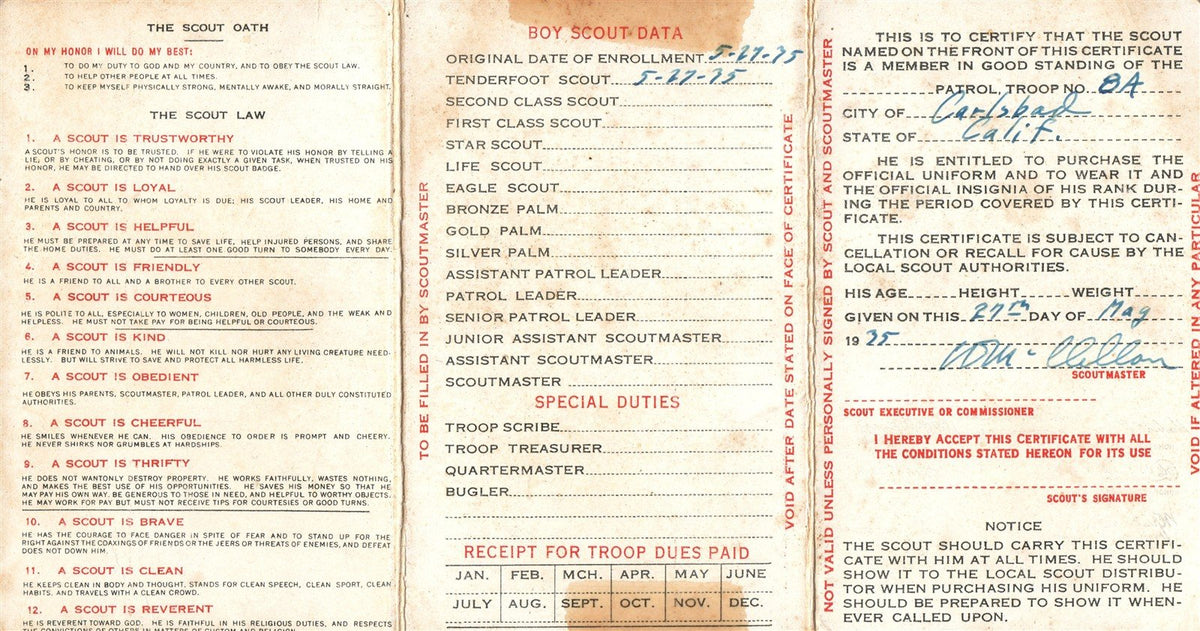 THE SCOUT OATH
ON MY HONOR I WILL DO MY BEST:
1. TO DO MY DUTY TO GOD AND MY COUNTRY, AND TO OBEY THE SCOUT LAW.
2. TO HELP OTHER PEOPLE AT ALL TIMES.
3. TO KEEP MYSELF PHYSICALLY STRONG, MENTALLY AWAKE, AND MORALLY STRAIGHT.
THE SCOUT LAW
1. A SCOUT IS TRUSTWORTHY
A SCOUT'S HONOR IS TO BE TRUSTED. IF HE WERE TO VIOLATE HIS HONOR BY TELLING A
LIE; OR BY CHEATING, OR BY NOT DOING EXACTLY A GIVEN TASK, WHEN TRUSTED ON HIS
HONOR, HE MAY BE DIRECTED TO HAND OVER HIS SCOUT BADGE.
2. A SCOUT IS LOYAL
HE IS LOYAL TO ALL TO WHOM LOYALTY IS DUE; HIS SCOUT LEADER, HIS HOME AND
PARENTS AND COUNTRY.
3. A SCOUT IS HELPFUL
HE MUST BE PREPARED AT ANY TIME TO SAVE LIFE, HELP INJURED PERSONS, AND SHARE
THE HOME DUTIES. HE MUST DO AT LEAST ONE GOOD TURN TO SOMEBODY EVERY DAY.
4. A SCOUT IS FRIENDLY
HE IS A FRIEND TO ALL AND A BROTHER TO EVERY OTHER SCOUT.
5. A SCOUT IS COURTEOUS
HE IS POLITE TO ALL, ESPECIALLY TO WOMEN, CHILDREN, OLD PEOPLE, AND THE WEAK AND
HELPLESS. HE MUST NOT TAKE PAY FOR BEING HELPFUL OR COURTEOUS.
6. A SCOUT IS KIND
HE IS A FRIEND TO ANIMALS. HE WILL NOT KILL NOR HURT ANY LIVING CREATURE NEED-
LESSLY. BUT WILL STRIVE TO SAVE AND PROTECT ALL HARMLESS LIFE.
7. A SCOUT IS OBEDIENT
HE OBEYS HIS PARENTS, SCOUTMASTER, PATROL LEADER, AND ALL OTHER DULY CONSTITUTED
AUTHORITIES.
8. A SCOUT IS CHEERFUL
HE SMILES WHENEVER HE CAN. HIS OBEDIENCE TO ORDER IS PROMPT AND CHEERY.
HE NEVER SHIRKS NOR GRUMBLES AT HARDSHIPS.
9. A SCOUT IS THRIFTY
HE DOES NOT WANTONLY DESTROY PROPERTY. HE WORKS FAITHFULLY, WASTES NOTHING,
AND MAKES THE BEST USE OF HIS OPPORTUNITIES. HE SAVES HIS MONEY SO THAT HE
MAY PAY HIS OWN WAY. BE GENEROUS TO THOSE IN NEED, AND HELPFUL TO WORTHY OBJECTS.
HE MAY WORK FOR PAY BUT MUST NOT RECEIVE TIPS FOR COURTESIES OR GOOD TURNS.
10. A SCOUT IS BRAVE
HE HAS THE COURAGE TO FACE DANGER IN SPITE OF FEAR AND TO STAND UP FOR THE
RIGHT AGAINST THE COAXINGS OF FRIENDS OR THE JEERS OR THREATS OF ENEMIES, AND DEFEAT
DOES NOT DOWN HIM.
11. A SCOUT IS CLEAN
HE KEEPS CLEAN IN BODY AND THOUGHT, STANDS FOR CLEAN SPEECH, CLEAN SPORT, CLEAN
HABITS, AND TRAVELS WITH A CLEAN CROWD.
12. A SCOUT IS REVERENT
HE IS REVERENT TOWARD GOD. HE IS FAITHFUL IN HIS RELIGIOUS DUTIES, AND RESPECTS
THE CONVICTIONS OF OTHERS IN MATTERS OF CUSTOM AND RELIGION.
TO BE FILLED IN BY SCOUTMASTER
BOY SCOUT DATA
ORIGINAL DATE OF ENROLLMENT 5-27-35
TENDERFOOT SCOUT 5-27-35
SECOND CLASS SCOUT
FIRST CLASS SCOUT
STAR SCOUT
LIFE SCOUT
EAGLE SCOUT
BRONZE PALM
GOLD PALM
SILVER PALM
ASSISTANT PATROL LEADER
PATROL LEADER
SENIOR PATROL LEADER
JUNIOR ASSISTANT SCOUTMASTER
ASSISTANT SCOUTMASTER
SCOUTMASTER
SPECIAL DUTIES
TROOP SCRIBE
TROOP TREASURER
QUARTERMASTER
BUGLER
RECEIPT FOR TROOP DUES PAID
JAN. FEB. MCH. APR. MAY JUNE
JULY AUG. SEPT. OCT. NOV. DEC.
VOID AFTER DATE STATED ON FACE OF CERTIFICATE
NOT VALID UNLESS PERSONALLY SIGNED BY SCOUT AND SCOUTMASTER.
THIS IS TO CERTIFY THAT THE SCOUT
NAMED ON THE FRONT OF THIS CERTIFICATE
IS A MEMBER IN GOOD STANDING OF THE
PATROL, TROOP NO. 8A
CITY OF Carlsbad
STATE OF Calif.
HE IS ENTITLED TO PURCHASE THE
OFFICIAL UNIFORM AND TO WEAR IT AND
THE OFFICIAL INSIGNIA OF HIS RANK DUR-
ING THE PERIOD COVERED BY THIS CERTI-
FICATE.
THIS CERTIFICATE IS SUBJECT TO CAN-
CELLATION OR RECALL FOR CAUSE BY THE
LOCAL SCOUT AUTHORITIES.
HIS AGE HEIGHT WEIGHT
GIVEN ON THIS 27th DAY OF May
19 35
SCOUTMASTER
SCOUT EXECUTIVE OR COMMISSIONER
I HEREBY ACCEPT THIS CERTIFICATE WITH ALL
THE CONDITIONS STATED HEREON FOR ITS USE
SCOUT'S SIGNATURE
NOTICE
THE SCOUT SHOULD CARRY THIS CERTIFI-
CATE WITH HIM AT ALL TIMES. HE SHOULD
SHOW IT TO THE LOCAL SCOUT DISTRIBU-
TOR WHEN PURCHASING HIS UNIFORM. HE
SHOULD BE PREPARED TO SHOW IT WHEN-
EVER CALLED UPON.
VOID IF ALTERED IN ANY PARTICULAR